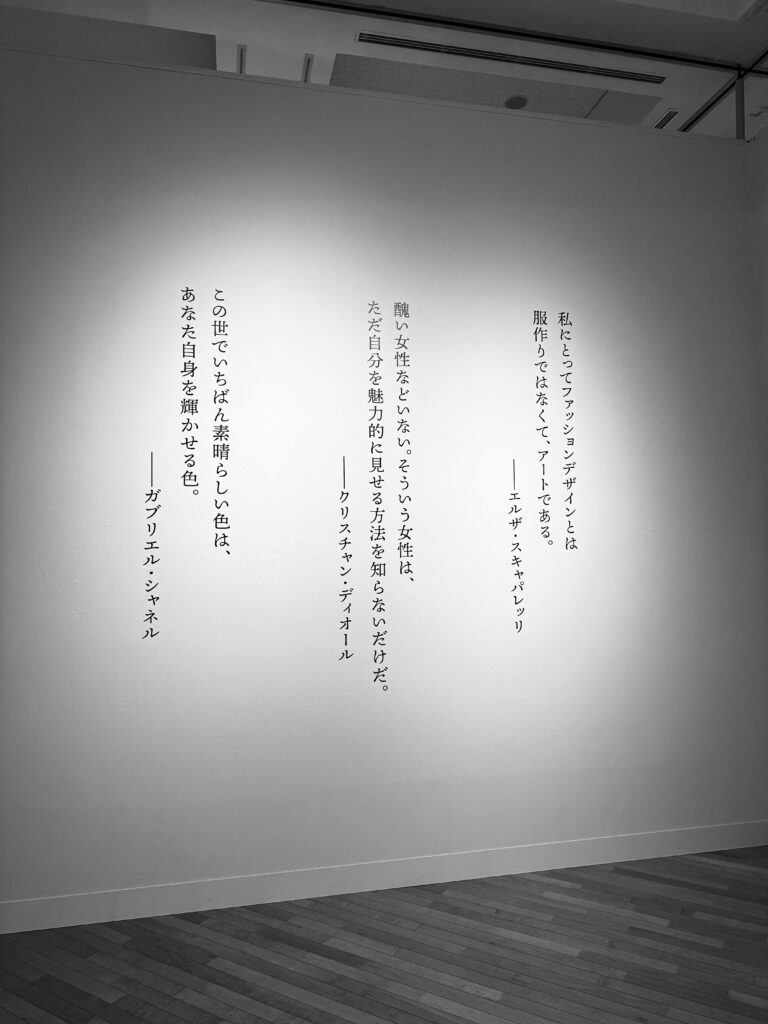 私にとってファッションデザインとは
服作りではなくて、アートである。
──エルザ・スキャパレッリ
醜い女性などいない。そういう女性は、
ただ自分を魅力的に見せる方法を知らないだけだ。
──クリスチャン・ディオール
この世でいちばん素晴らしい色は、
あなた自身を輝かせる色。
──ガブリエル・シャネル